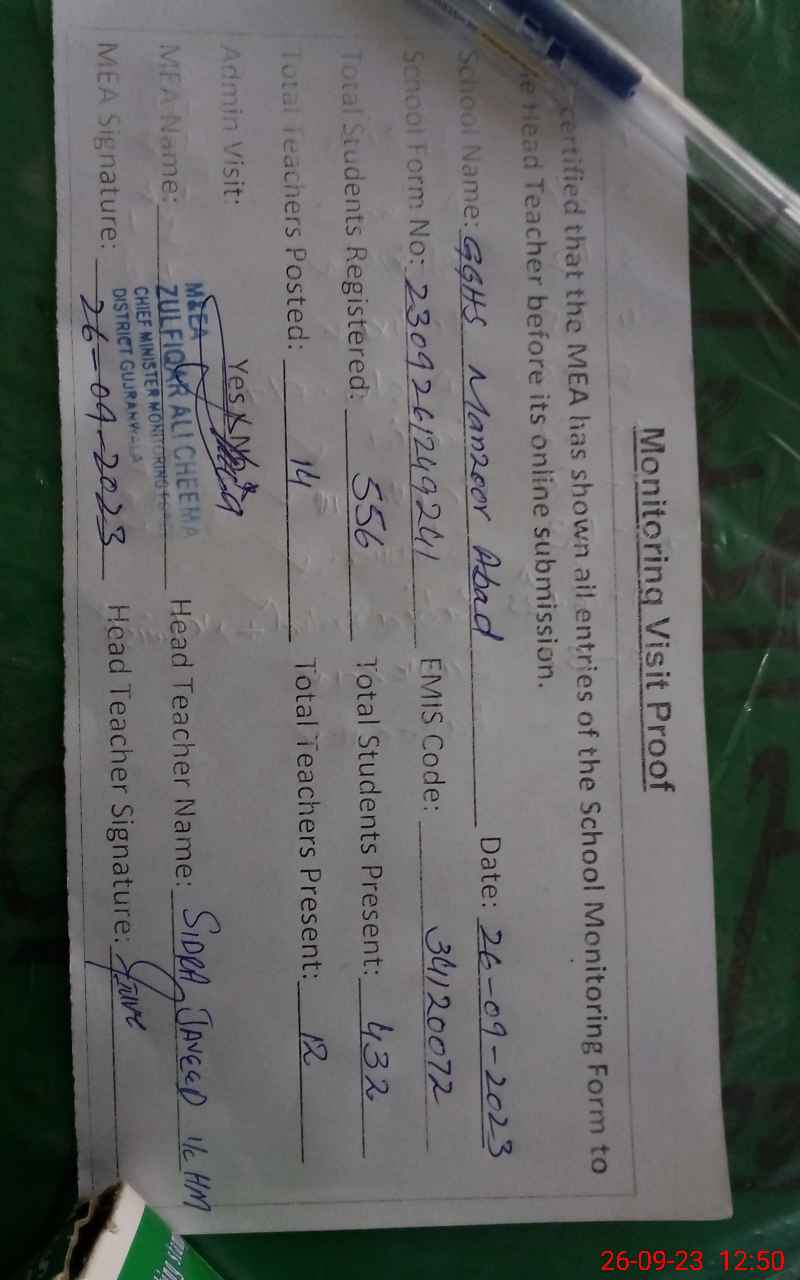 Monitoring Visit Proof
certified that the MEA has shown all entries of the School Monitoring Form to
Head Teacher before its online submission.
School Name: GGHS Manzoor Abad Date: 26-09-2023
School Form No: 2309261249241 EMIS Code: 34120072
Total Students Registered: 556 Total Students Present: 432
Total Teachers Posted: 14 Total Teachers Present: 12
Admin Visit: Yes / No
MEA Name: Head Teacher Name: SIDRA JAVEED I/C HM
M&EA
ZULFIQAR ALI CHEEMA
CHIEF MINISTER MONITORING
DISTRICT GUJRANWALA
MEA Signature: 26-09-2023 Head Teacher Signature:
26-09-23 12:50